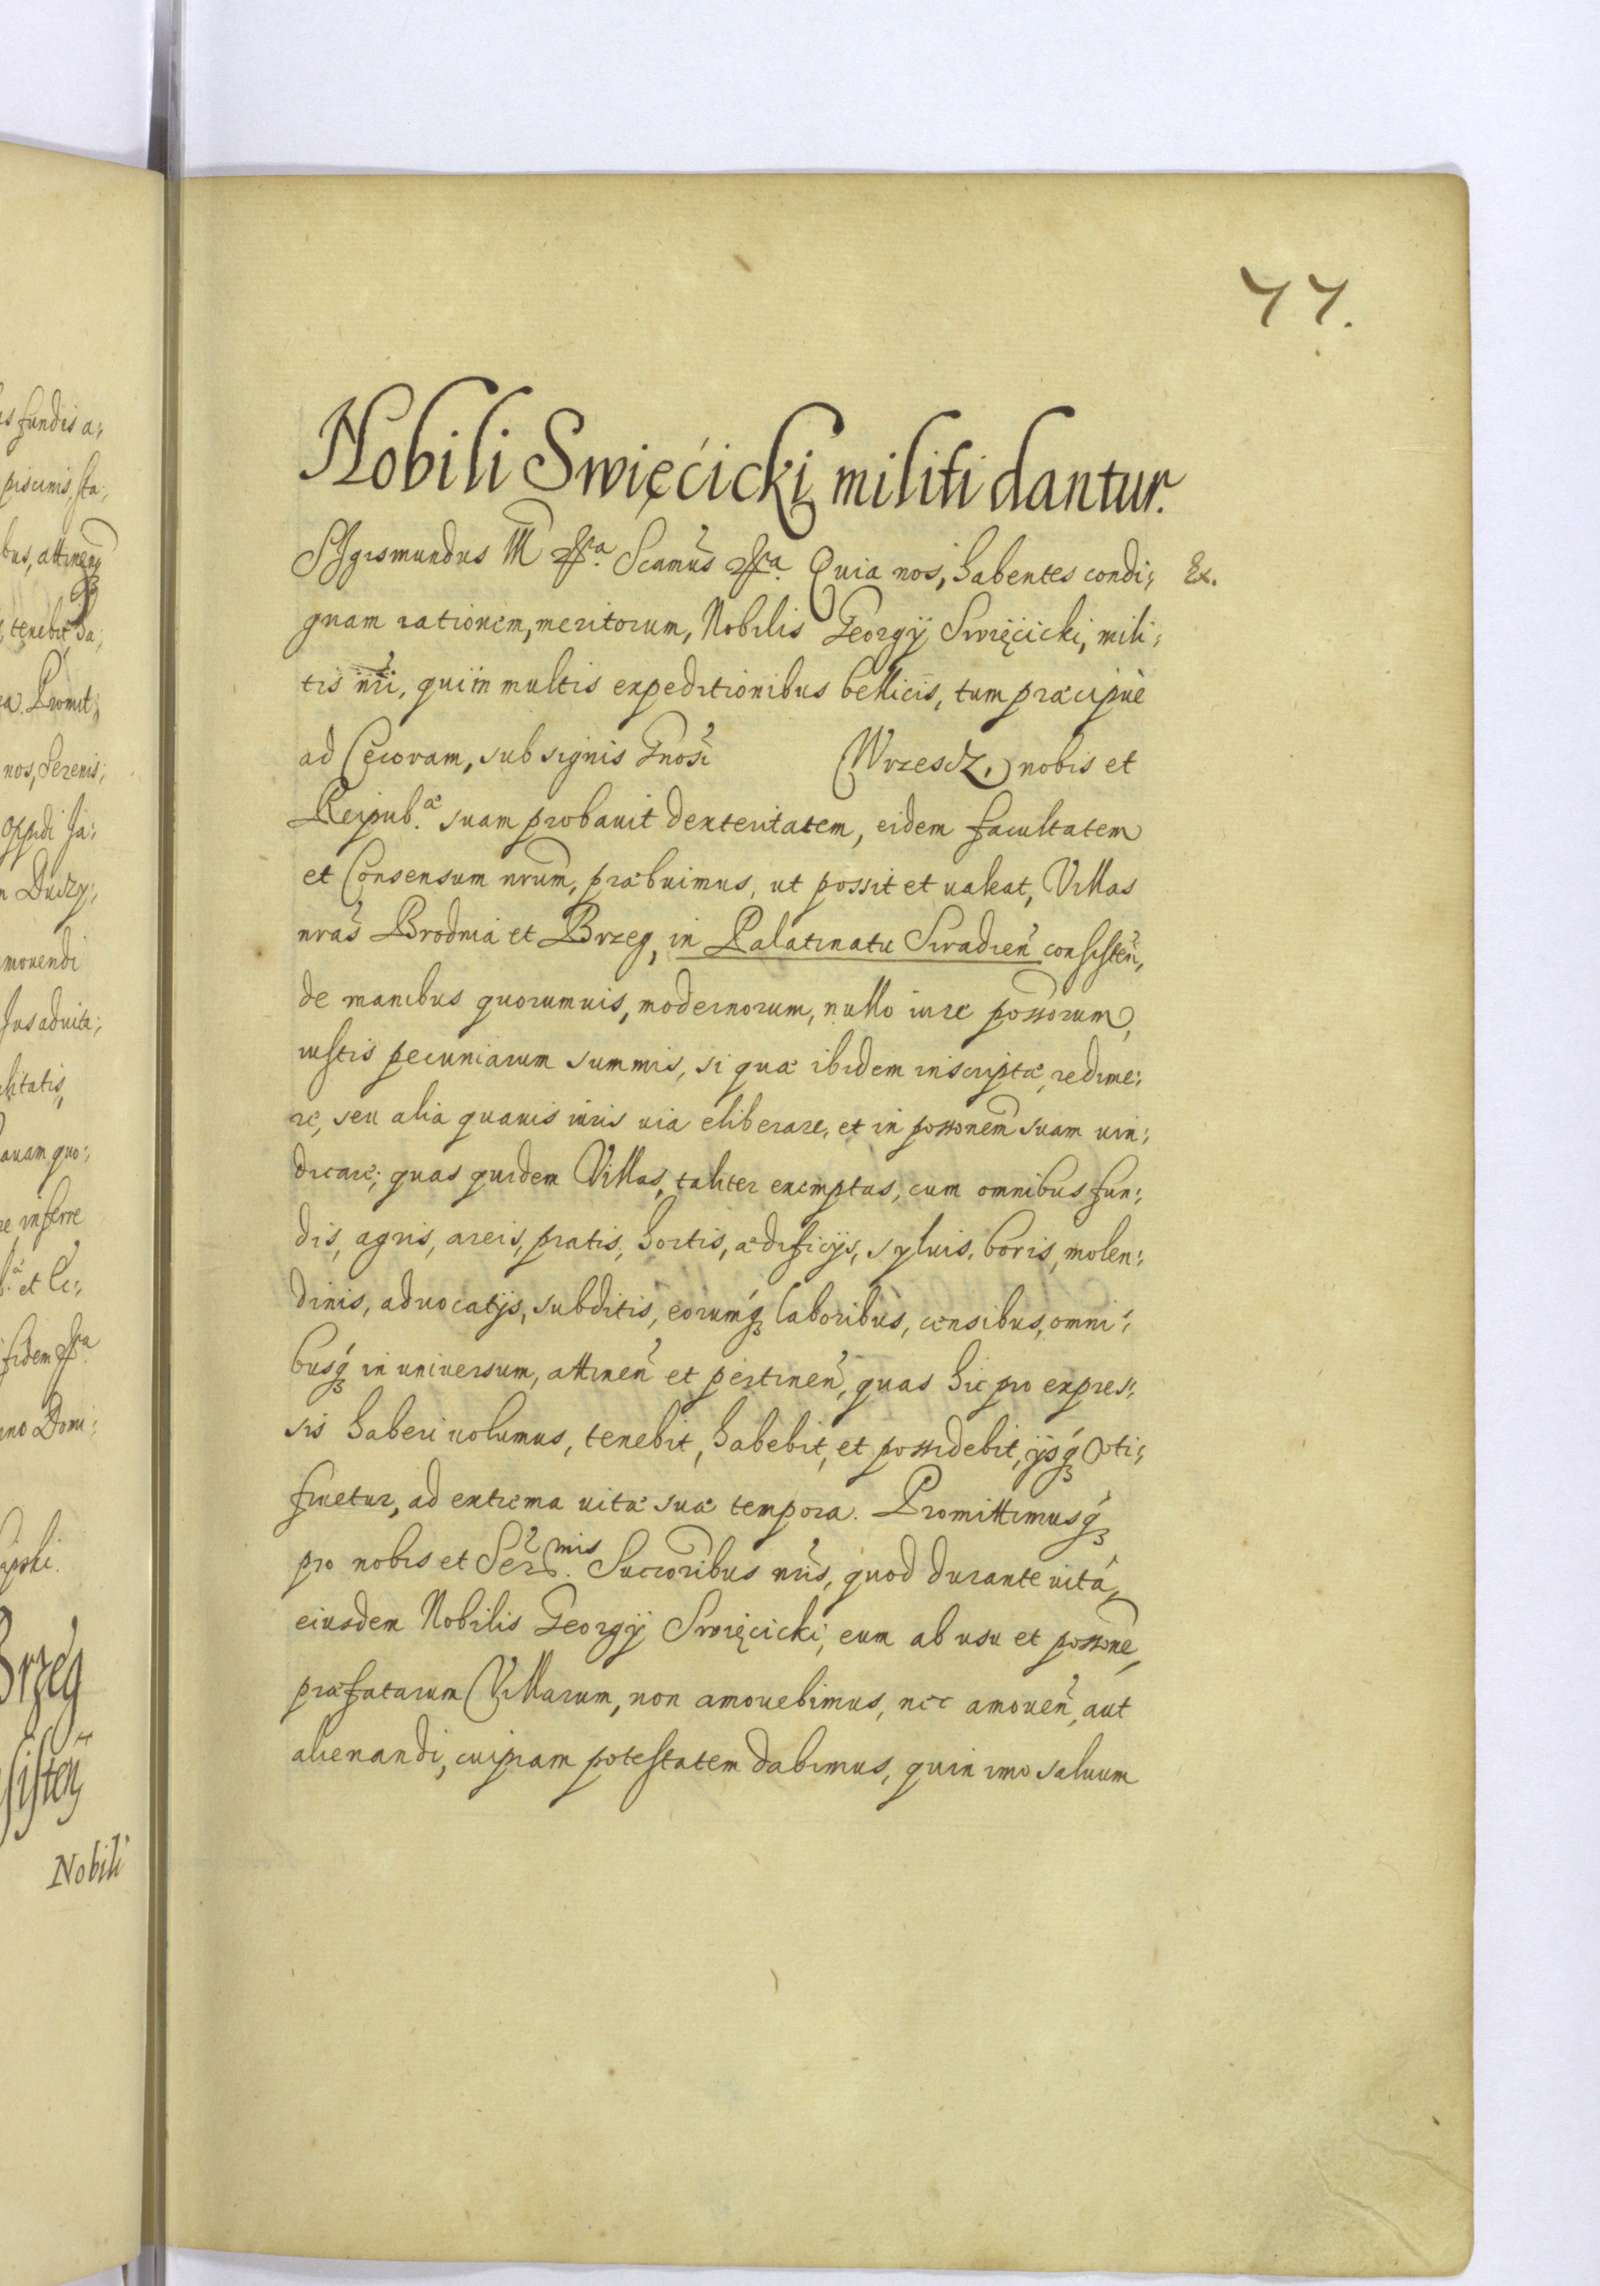 77.
Nobili Swięćicki militi dantur.
SIgismundus III etca. Scamus etca. Quia nos, habentes condi:
Ex.
gnam rationem, meritorum, Nobilis Georgij Swięćicki, mili:
tis nri, qui in multis expeditionibus bellicis, tum præcipuè
ad Cęcoram, sub signis Gnosi (Wrzescz,) nobis et
Reipub.æ suam probauit dexteritatem, eidem facultatem
et Consensum nrum, præbuimus, ut possit et ualeat, Villas
nras Brodnia et Brzeg, in Palatinatu Siradien consisten,
de manibus quorumuis, modernorum, nullo iure possorum,
iustis pecuniarum summis, si quæ ibidem inscriptæ, redime:
re, seu alia quauis iuris uia eliberare, et in possonem suam uin:
dicare; quas quidem Villas, taliter exemptas, cum omnibus fun:
dis, agris, areis, pratis, hortis, ædificijs, syluis, boris, molen:
dinis, aduocatijs, subditis, eorumq3 laboribus, censibus, omni:
busq3 in uniuersum, attinen et pertinen, quas hic pro expres:
sis haberi uolumus, tenebit, habebit, et possidebit, ijsq3 Vti:
fruetur, ad extrema uitæ suæ tempora. Promittimusq3
pro nobis et Ser.mis Succoribus nris, quod durante uitâ,
eiusdem Nobilis Georgij Swięcicki, eum ab usu et possone,
præfatarum Villarum, non amouebimus, nec amouen, aut
alienandi, cuipiam potestatem dabimus, quin imo saluum
s fundis a:
piscinis, sta:
bus, attinen
tenebit, ha:
Promit:
nos, Serenis:
Oppidi Ja:
mouendi
Jus aduita:
litatis,
quo:
re inferre
et Ec:
fidem etca.
no Domi:
Brzeg
sisten
Nobili